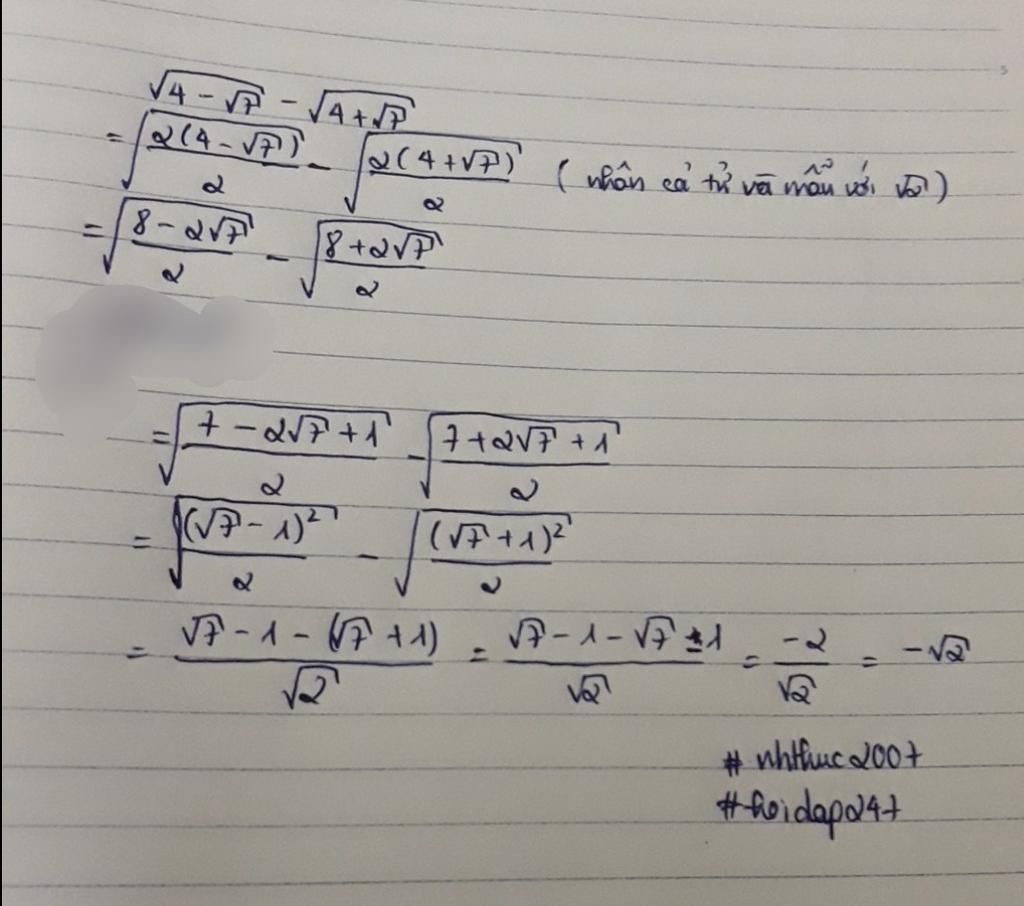 √(4 - √7) - √(4 + √7)
= √(2(4 - √7)/2) - √(2(4 + √7)/2) (nhân cả tử và mẫu với √2)
= √((8 - 2√7)/2) - √((8 + 2√7)/2)
= √((7 - 2√7 + 1)/2) - √((7 + 2√7 + 1)/2)
= √((√7 - 1)²/2) - √((√7 + 1)²/2)
= (√7 - 1 - (√7 + 1))/√2 = (√7 - 1 - √7 - 1)/√2 = -2/√2 = -√2
# nhthuc2007
#hoidap247